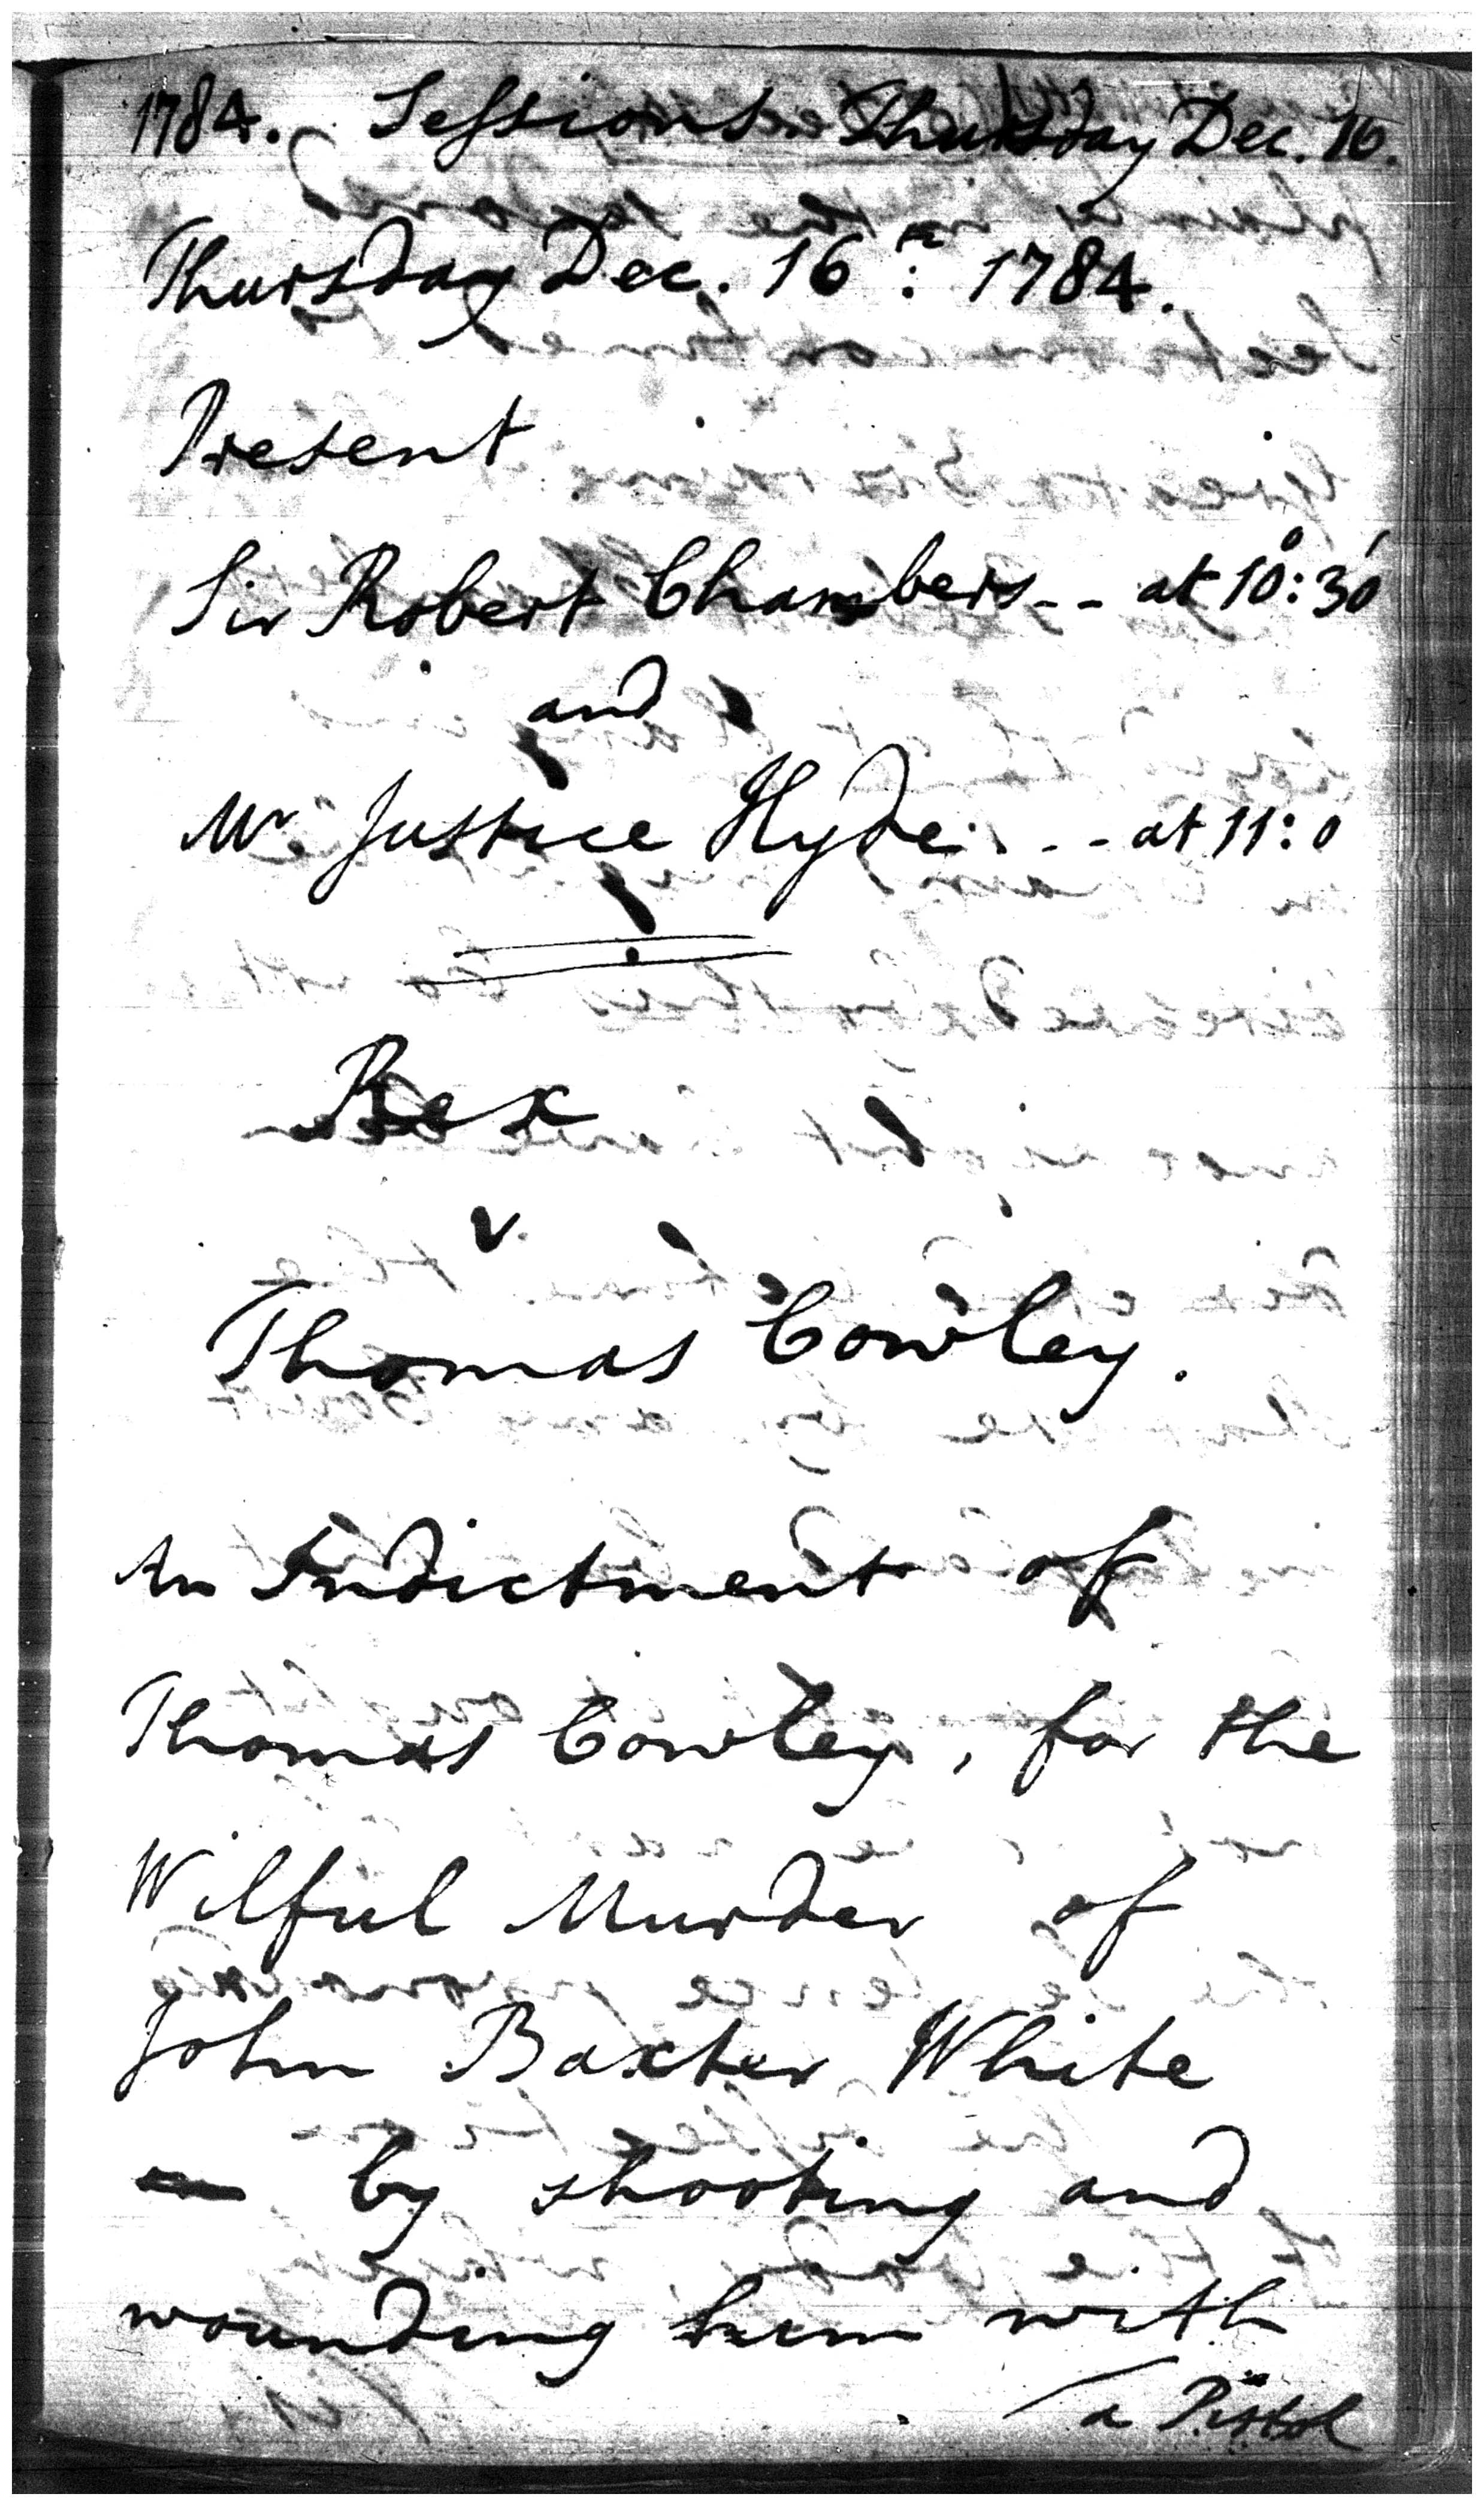 1784. Sessions. Thursday Dec. 16.
Thursday Dec. 16th: 1784.
Present
Sir Robert Chambers -- at 10°: 30'
and
Mr Justice Hyde. -- at 11: 0
Rex
v.
Thomas Cowley.
An Indictment of
Thomas Cowley, for the
Wilful Murder of
John Baxter White
by shooting and
wounding him with
a Pistol